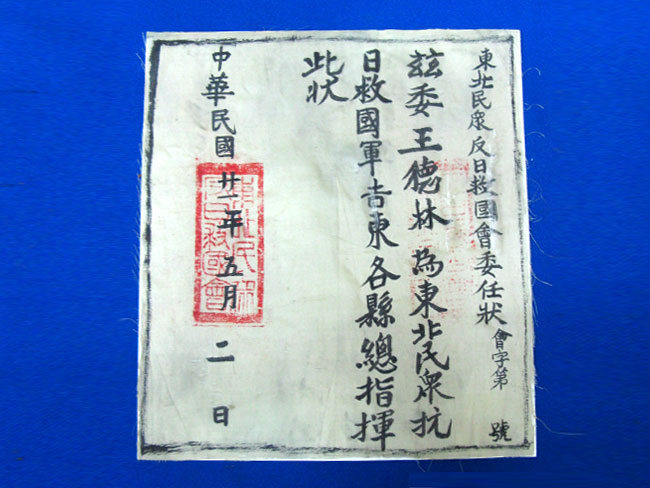 東北民眾反日救國會委任狀 會字第 號
兹委王德林為東北民眾抗
日救國軍吉東各縣總指揮
此状
中華民國廿一年五月二日